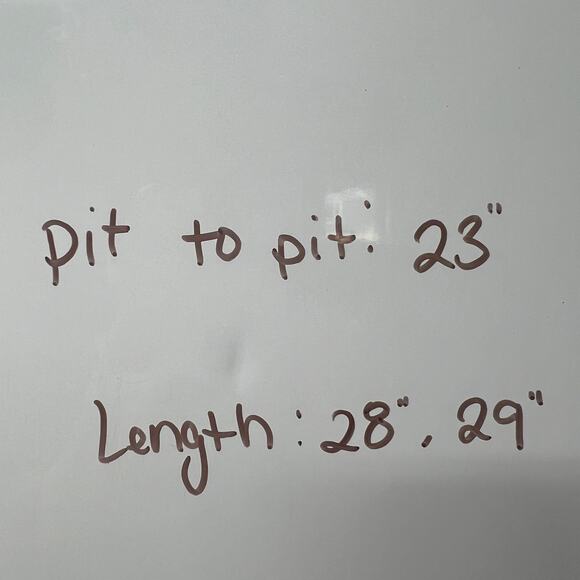 pit to pit: 23"
Length: 28", 29"